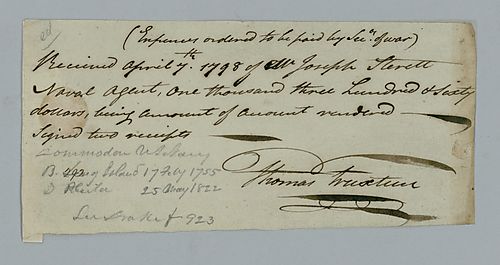 (Expences ordered to be paid by Secy. of war)
Received April 7th. 1798 of Mr Joseph Sterett
Naval Agent, One thousand three hundred & Sixty
dollars, being amount of account rendered
Signed two receipts
Thomas Truxtun
Commodore U S Navy
B. Long Island 17 Feby 1755
D Phila 25 May 1822
See Drake p 923